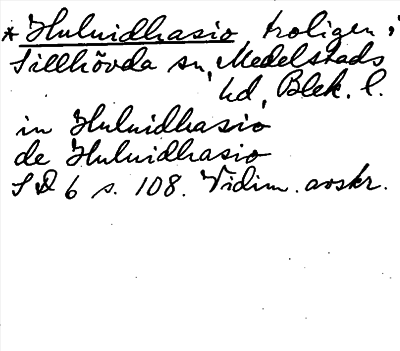 * Huluidhasio, troligen i
Sillhövda sn, Medelstads
hd, Blek. l.
in Huluidhasio
de Huluidhasio
SD 6 s. 108. Vidim. avskr.